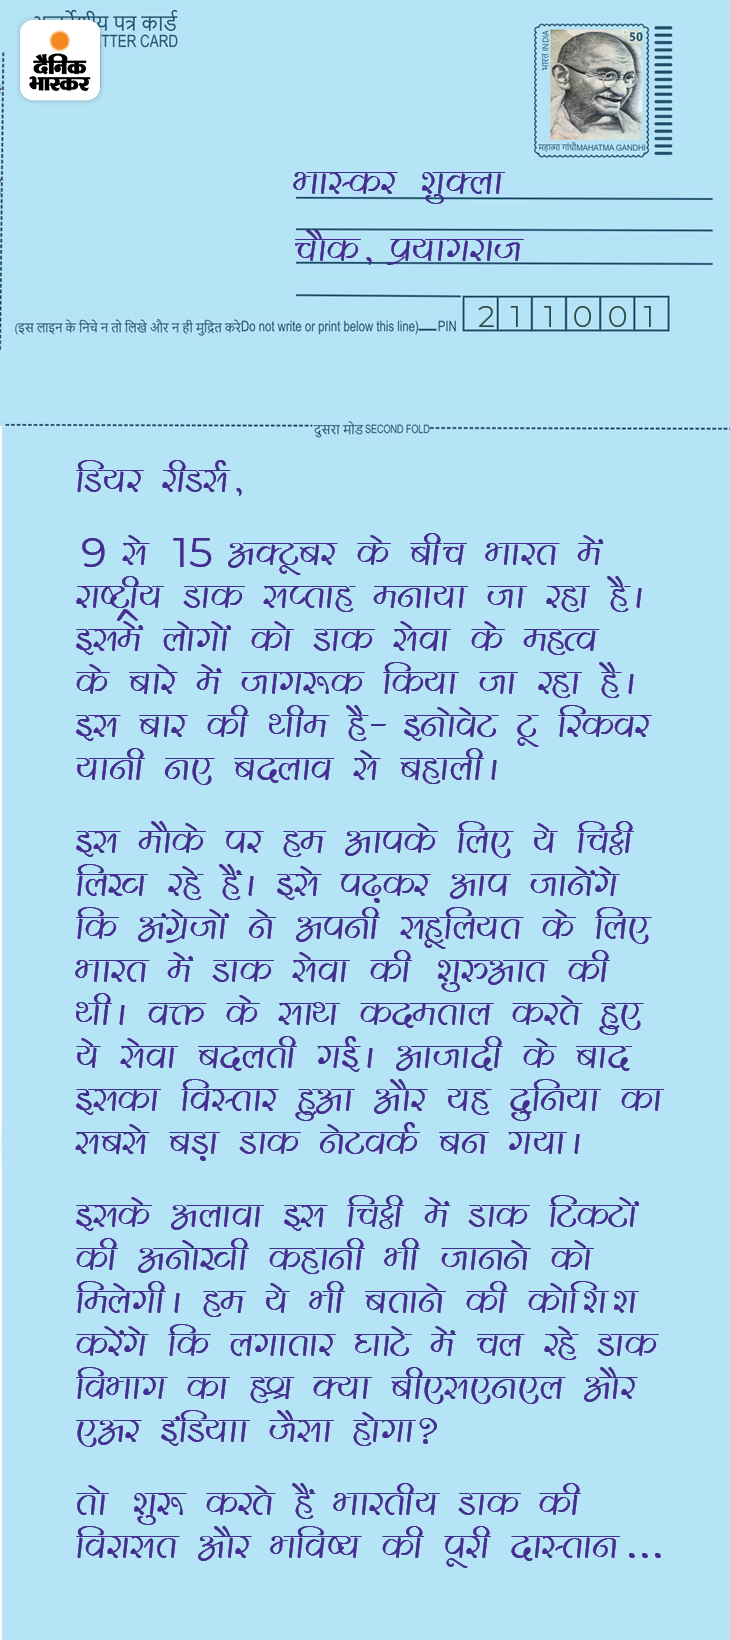 पत्र कार्ड
TTER CARD
दैनिक
भास्कर
50
भारत INDIA
महात्मा गांधी MAHATMA GANDHI
भास्कर शुक्ला
चौक, प्रयागराज
(इस लाइन के निचे न तो लिखे और न ही मुद्रित करेDo not write or print below this line) PIN 211001
दुसरा मोड SECOND FOLD
डियर रीडर्स,
9 से 15 अक्टूबर के बीच भारत में
राष्ट्रीय डाक सप्ताह मनाया जा रहा है।
इसमें लोगों को डाक सेवा के महत्व
के बारे में जागरूक किया जा रहा है।
इस बार की थीम है- इनोवेट टू रिकवर
यानी नए बदलाव से बहाली।
इस मौके पर हम आपके लिए ये चिट्ठी
लिख रहे हैं। इसे पढ़कर आप जानेंगे
कि अंग्रेजों ने अपनी सहूलियत के लिए
भारत में डाक सेवा की शुरुआत की
थी। वक्त के साथ कदमताल करते हुए
ये सेवा बदलती गई। आजादी के बाद
इसका विस्तार हुआ और यह दुनिया का
सबसे बड़ा डाक नेटवर्क बन गया।
इसके अलावा इस चिट्ठी में डाक टिकटों
की अनोखी कहानी भी जानने को
मिलेगी। हम ये भी बताने की कोशिश
करेंगे कि लगातार घाटे में चल रहे डाक
विभाग का हश्र क्या बीएसएनएल और
एअर इंडियाा जैसा होगा?
तो शुरू करते हैं भारतीय डाक की
विरासत और भविष्य की पूरी दास्तान...